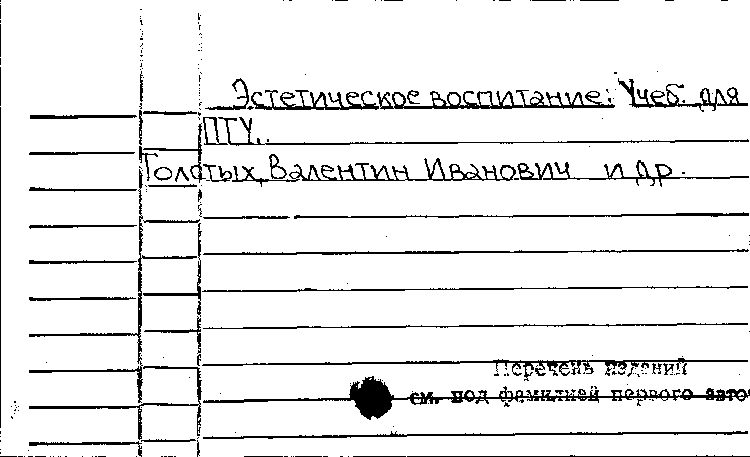 Эстетическое воспитание: Учеб. для
ПТУ..
Толстых, Валентин Иванович и др.
Перечень изданий
см. под фамилией первого авто